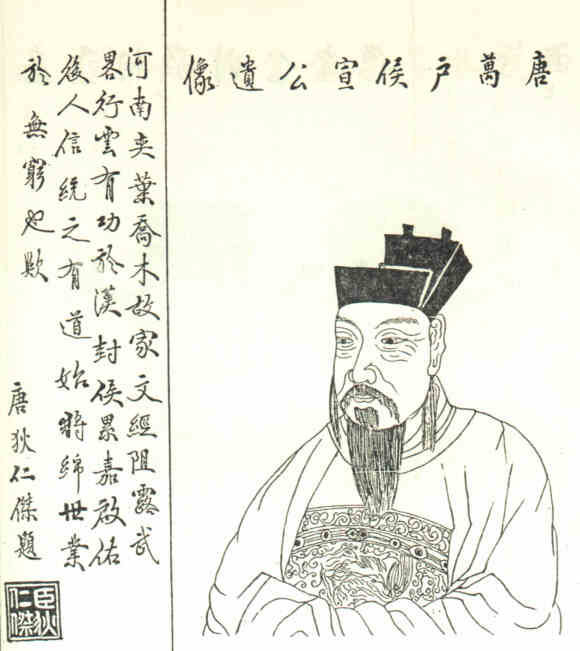 唐萬戶侯宣公遺像
河南奕葉喬木故家文經阻露武
畧行雲有功於漢封侯累嘉啟佑
後人信統之有道始將綿世業
於無窮也歟
唐狄仁傑題
臣狄仁傑